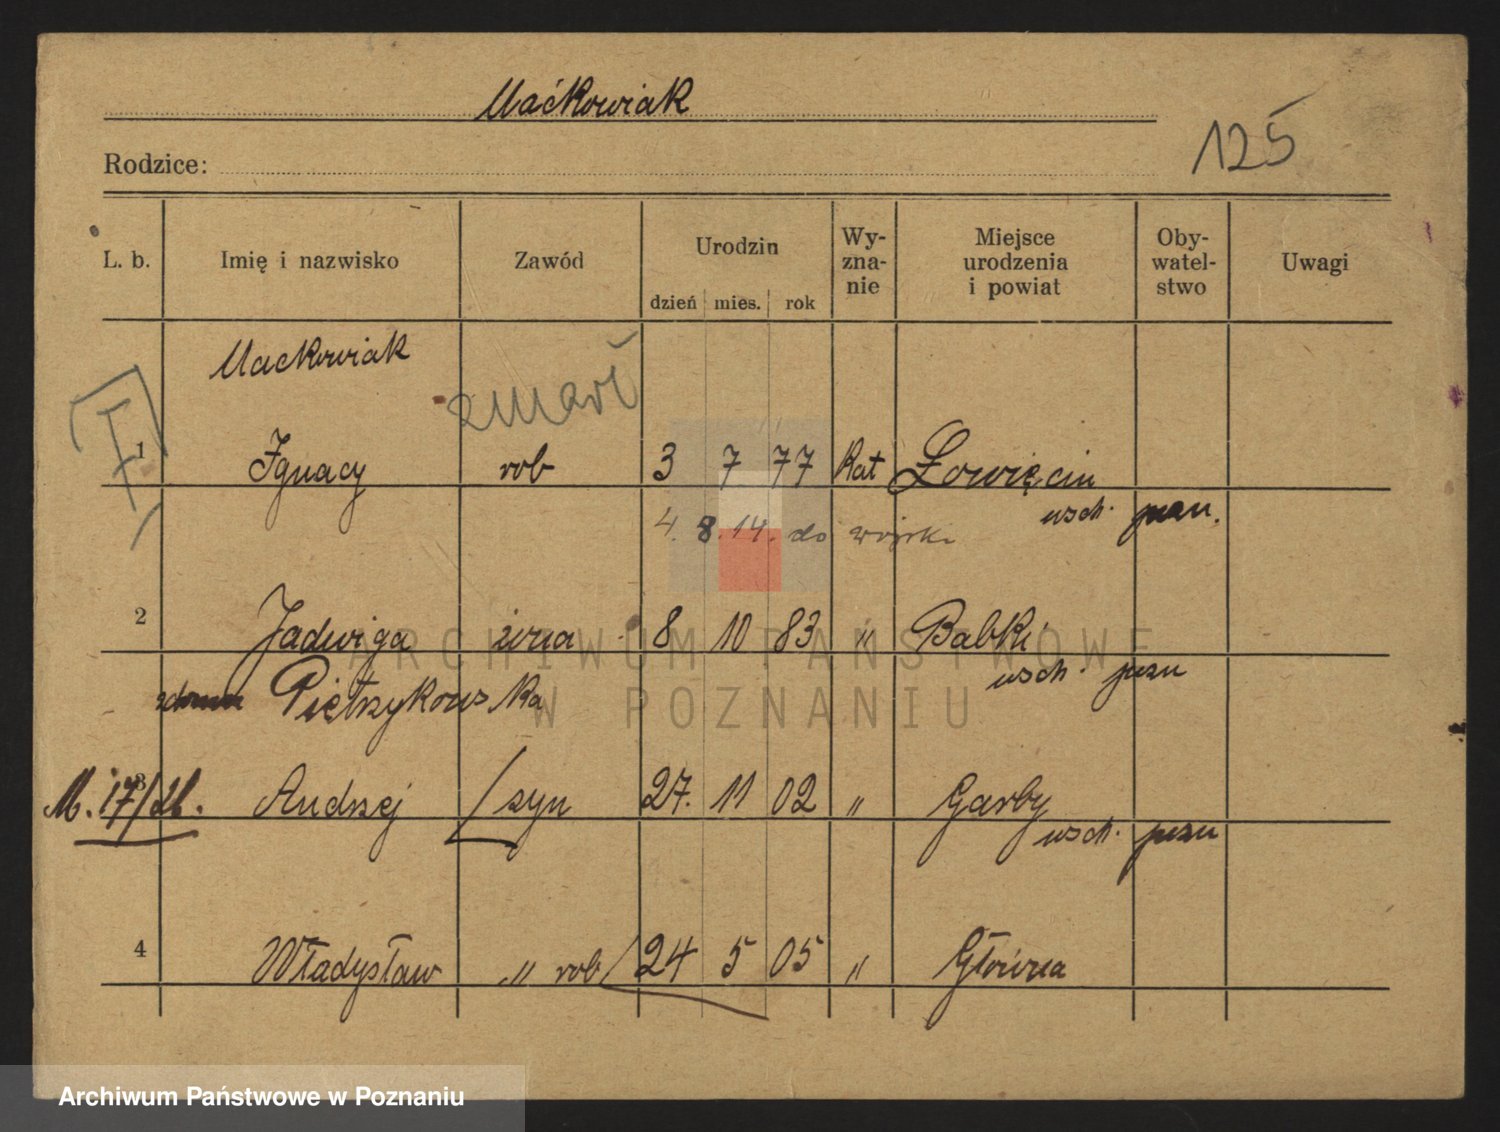 Maćkowiak
125
Rodzice:
L. b. Imię i nazwisko Zawód Urodzin dzień mies. rok Wy-zna-nie Miejsce urodzenia i powiat Oby-watel-stwo Uwagi
Mackowiak
zmarł
1 Ignacy rob 3 7 77 Kat Łowięcin
wsch. pozn.
4. 8. 14. do wojska
2 Jadwiga żona 8 10 83 " Babki
wsch. pozn
zdomu Pietrzykowska
M. 17/21. 3 Andrzej syn 27. 11 02 " Garby
wsch. pozn
4 Władysław " rob 24 5 05 " Główna
ARCHIWUM PAŃSTWOWE
W POZNANIU
Archiwum Państwowe w Poznaniu